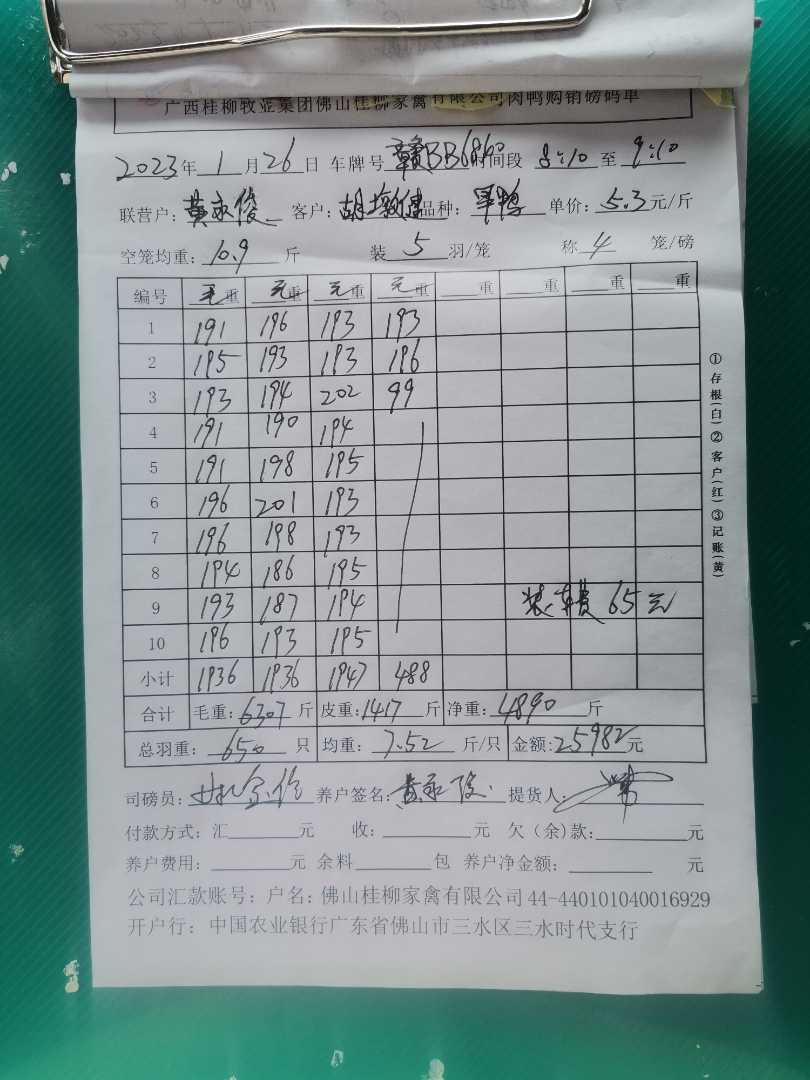 广西桂柳牧业集团佛山桂柳家禽有限公司肉鸭购销磅码单
2023年 1 月 26 日 车牌号 赣BB6860 时间段 8:10 至 9:10
联营户: 黄永俊 客户: 胡 品种: 旱鸭 单价: 5.3 元/斤
空笼均重: 10.9 斤 装 5 羽/笼 称 4 笼/磅
编号 毛重 毛重 毛重 毛重 重 重 重 重
1 191 196 193 193
2 195 193 193 196
3 193 194 202 99
4 191 190 194
5 191 198 195
6 196 201 193
7 196 198 193
8 194 186 195
9 193 187 194 装车费 65元
10 196 193 195
小计 1936 1936 1947 488
合计 毛重: 6307 斤 皮重: 1417 斤 净重: 4890 斤
总羽重: 650 只 均重: 7.52 斤/只 金额: 25982 元
司磅员: 养户签名: 黄永俊 提货人:
付款方式: 汇 元 收: 元 欠(余)款: 元
养户费用: 元 余料 包 养户净金额: 元
公司汇款账号: 户名: 佛山桂柳家禽有限公司 44-440101040016929
开户行: 中国农业银行广东省佛山市三水区三水时代支行
①存根(白)②客户(红)③记账(黄)